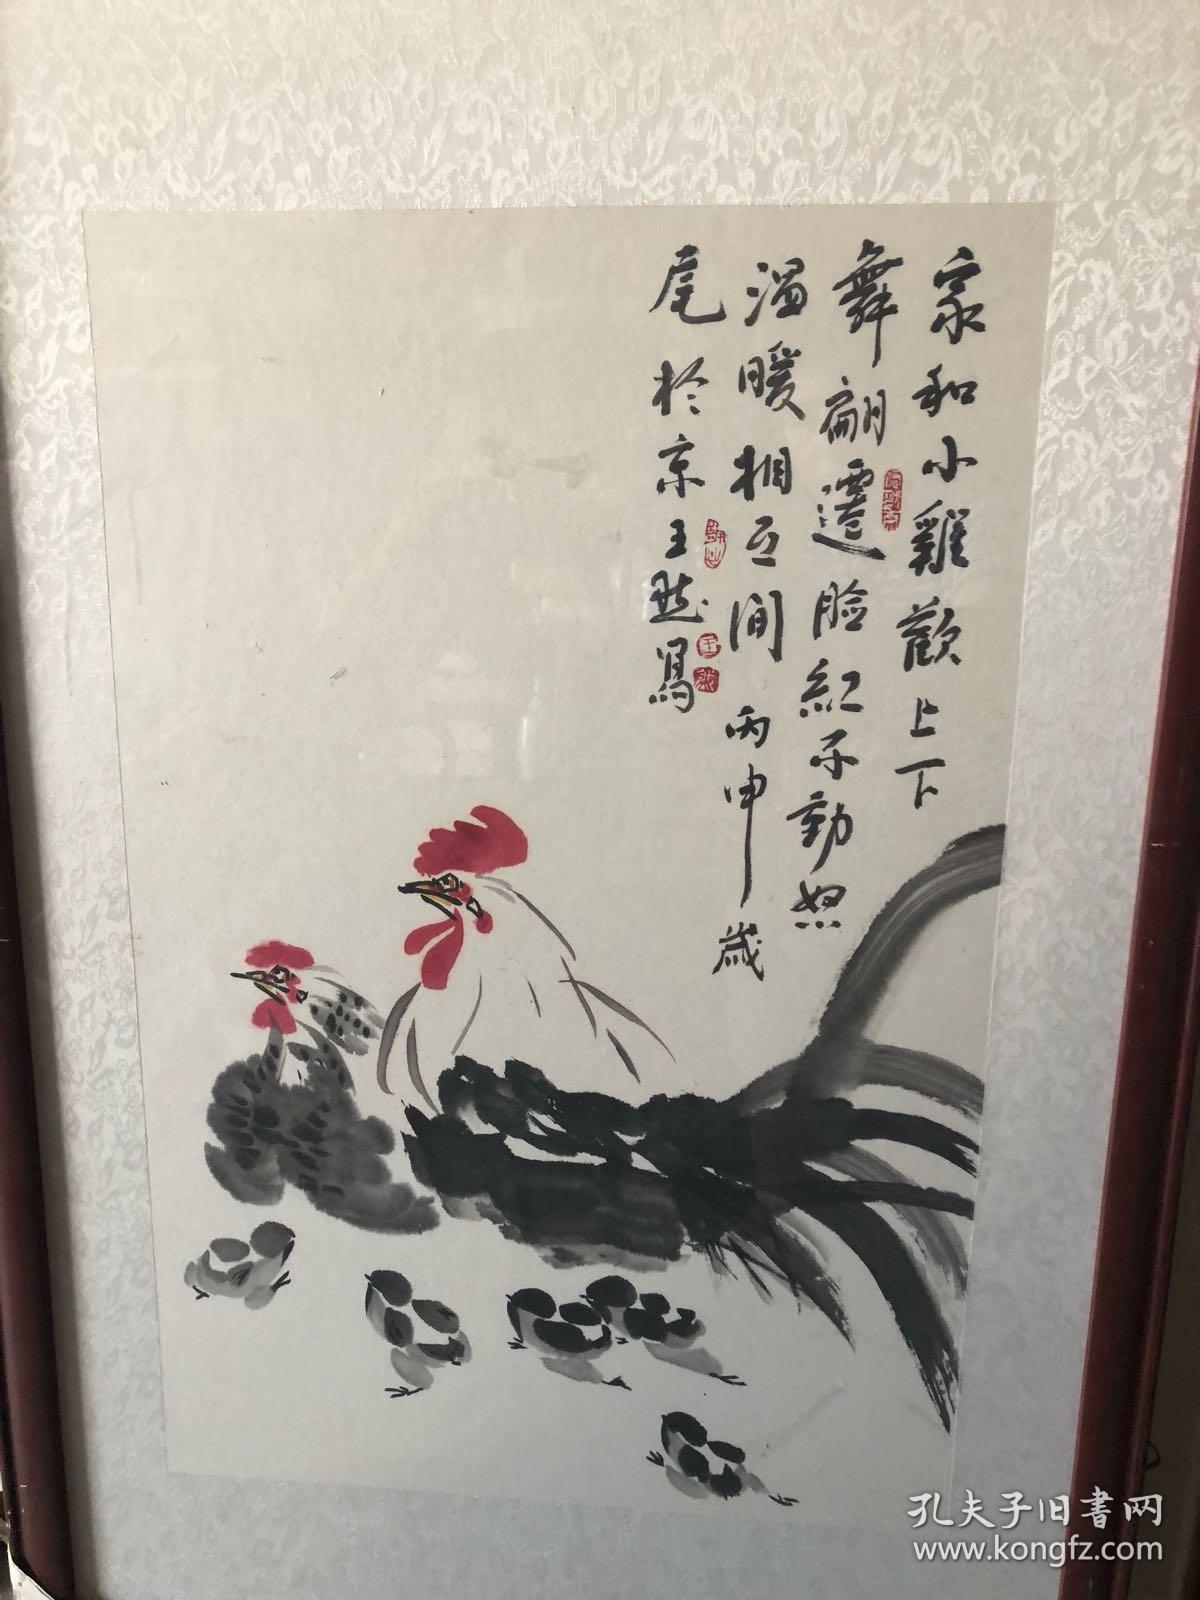 家和小雞歡上下
舞翩遷臉紅不動怒
溫暖相互間 丙申歲
尾於京王然寫
孔夫子旧書网
www.kongfz.com